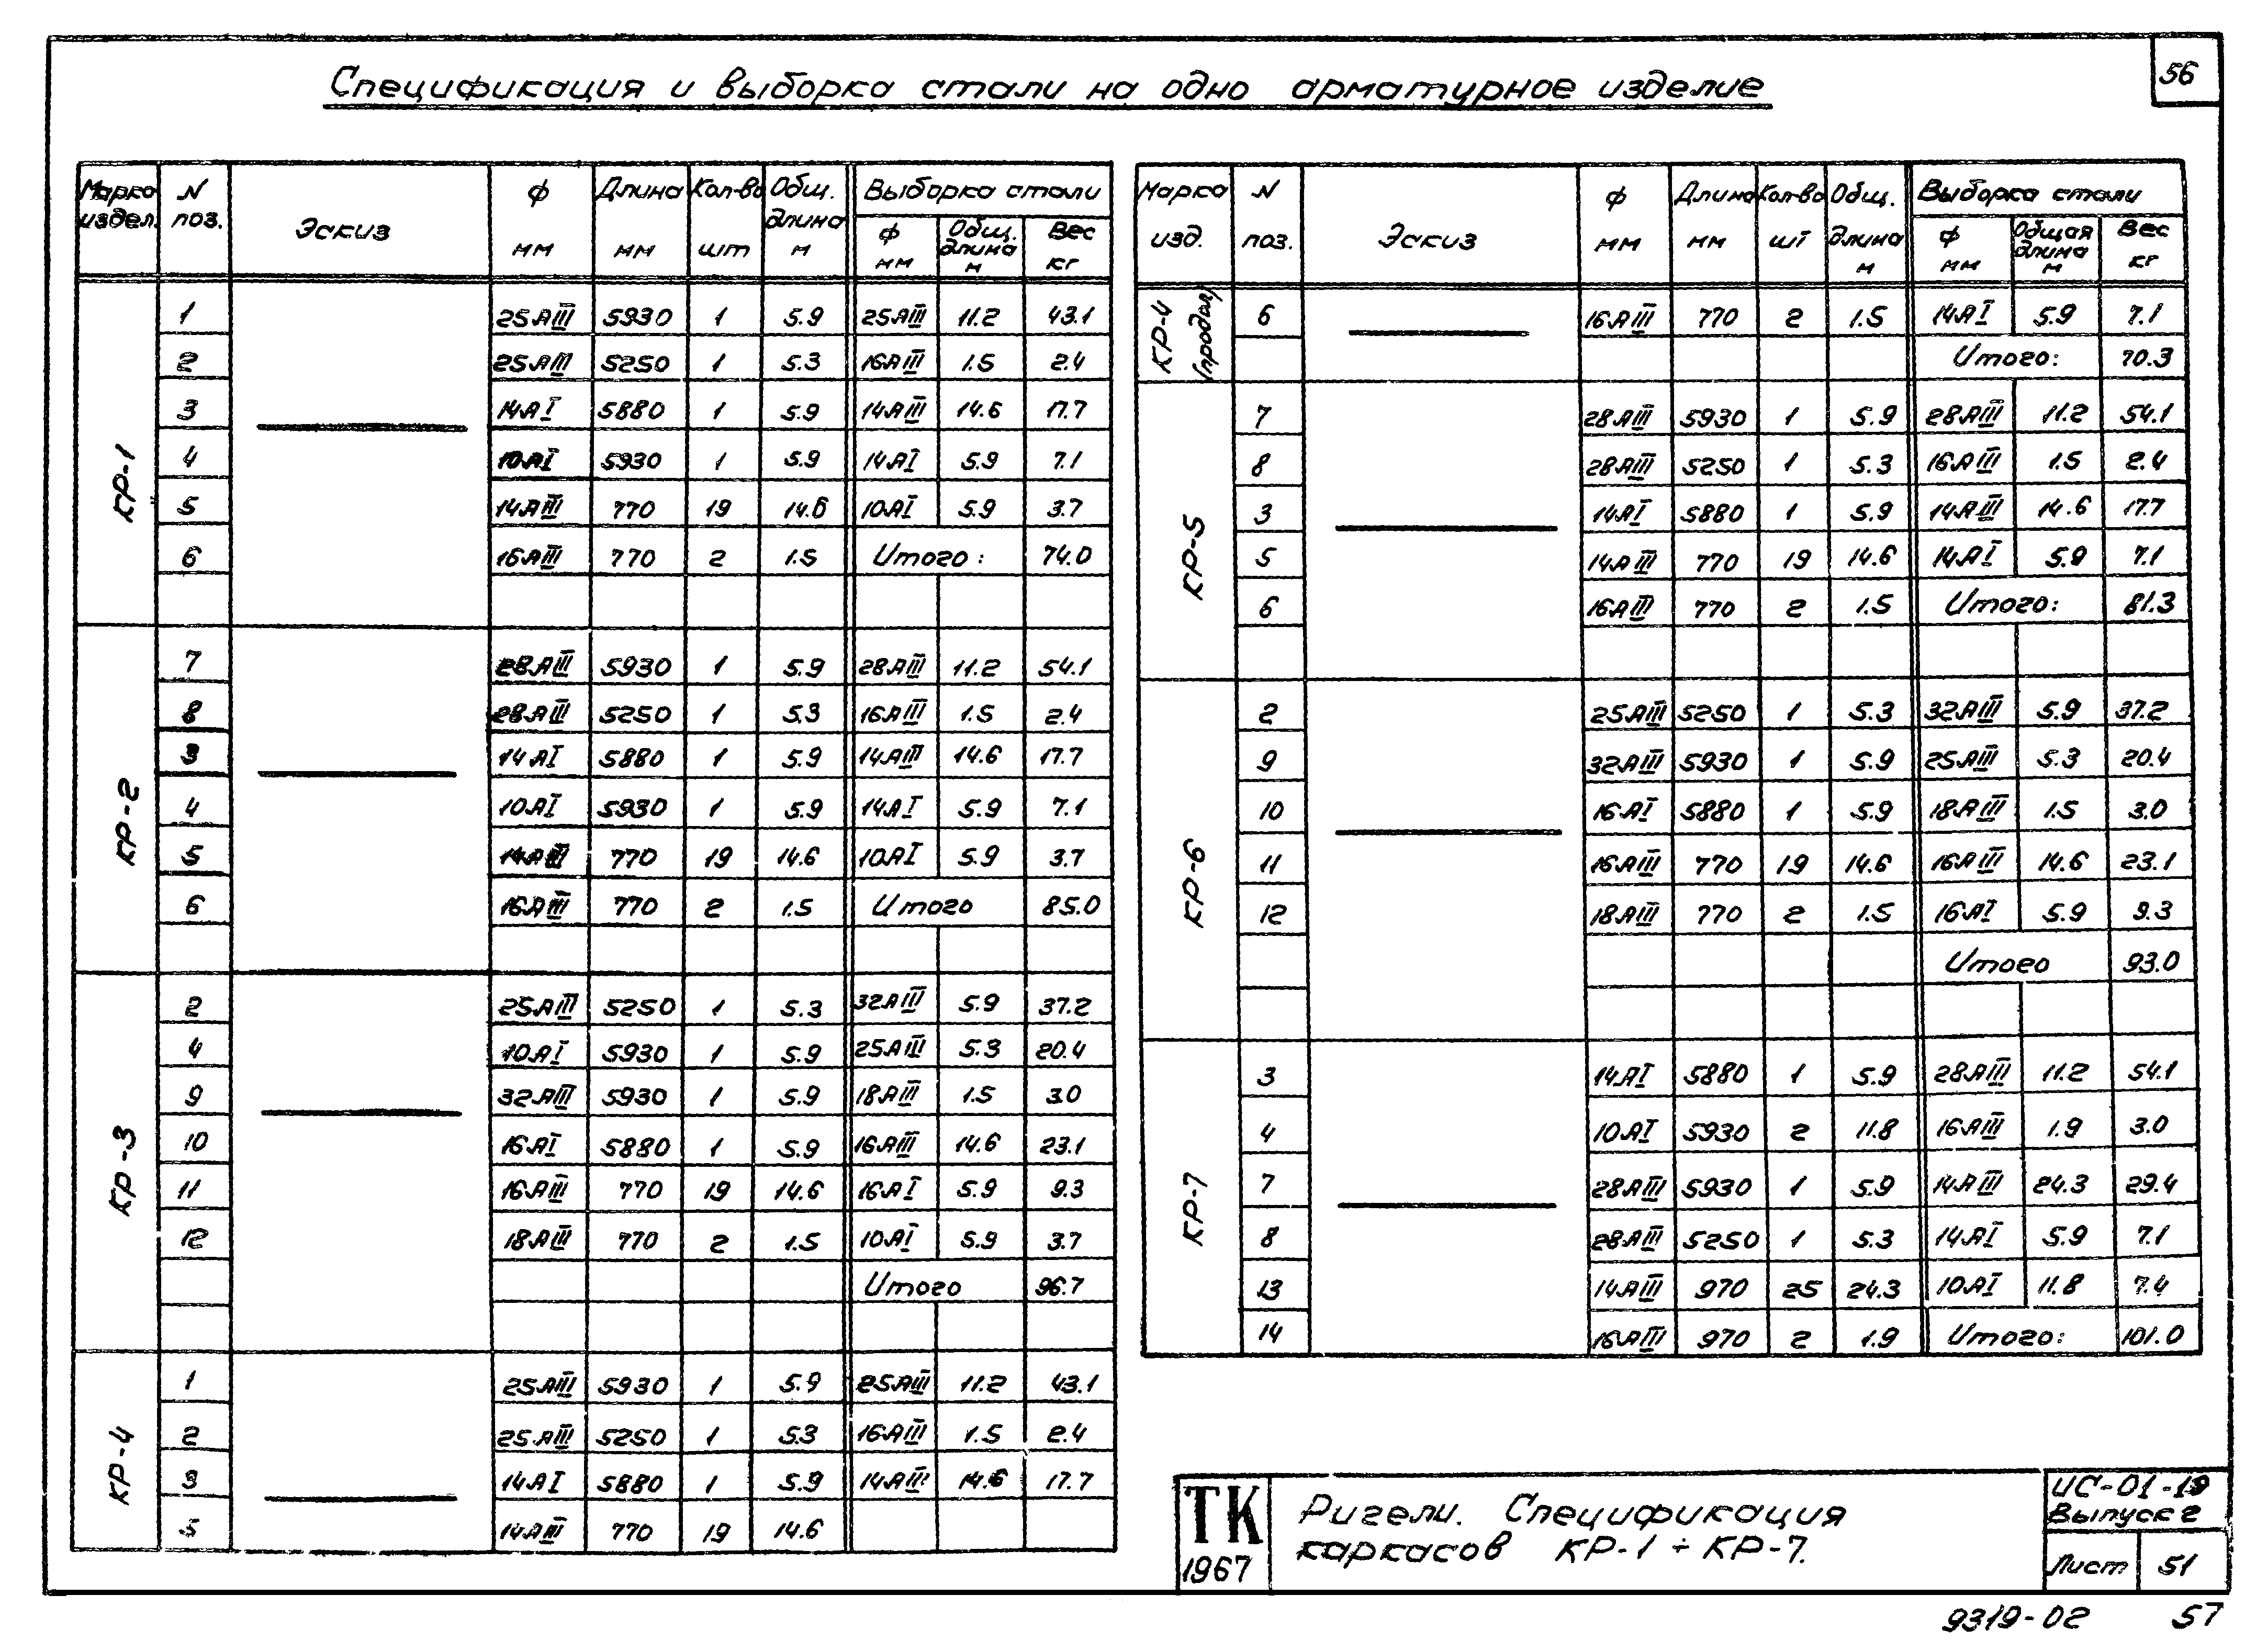 56
Спецификация и выборка стали на одно арматурное изделие
Марка издел. N поз. Эскиз ф мм Длина мм Кол-во шт Общ. длина м Выборка стали
ф мм Общ. длина м Вес кг
КР-1
1 25АIII 5930 1 5.9 25АIII 11.2 43.1
2 25АIII 5250 1 5.3 16АIII 1.5 2.4
3 14АI 5880 1 5.9 14АIII 14.6 17.7
4 10АI 5930 1 5.9 14АI 5.9 7.1
5 14АIII 770 19 14.6 10АI 5.9 3.7
6 16АIII 770 2 1.5 Итого: 74.0
КР-2
7 28АIII 5930 1 5.9 28АIII 11.2 54.1
8 28АIII 5250 1 5.3 16АIII 1.5 2.4
3 14АI 5880 1 5.9 14АIII 14.6 17.7
4 10АI 5930 1 5.9 14АI 5.9 7.1
5 14АIII 770 19 14.6 10АI 5.9 3.7
6 16АIII 770 2 1.5 Итого 85.0
КР-3
2 25АIII 5250 1 5.3 32АIII 5.9 37.2
4 10АI 5930 1 5.9 25АIII 5.3 20.4
9 32АIII 5930 1 5.9 18АIII 1.5 3.0
10 16АI 5880 1 5.9 16АIII 14.6 23.1
11 16АIII 770 19 14.6 16АI 5.9 9.3
12 18АIII 770 2 1.5 10АI 5.9 3.7
Итого 96.7
КР-4
1 25АIII 5930 1 5.9 25АIII 11.2 43.1
2 25АIII 5250 1 5.3 16АIII 1.5 2.4
3 14АI 5880 1 5.9 14АIII 14.6 17.7
5 14АIII 770 19 14.6
Марка изд. N поз. Эскиз ф мм Длина мм Кол-во шт Общ. длина м Выборка стали
ф мм Общая длина м Вес кг
КР-4 (продол)
6 16АIII 770 2 1.5 14АI 5.9 7.1
Итого: 70.3
КР-5
7 28АIII 5930 1 5.9 28АIII 11.2 54.1
8 28АIII 5250 1 5.3 16АIII 1.5 2.4
3 14АI 5880 1 5.9 14АIII 14.6 17.7
5 14АIII 770 19 14.6 14АI 5.9 7.1
6 16АIII 770 2 1.5 Итого: 81.3
КР-6
2 25АIII 5250 1 5.3 32АIII 5.9 37.2
9 32АIII 5930 1 5.9 25АIII 5.3 20.4
10 16АI 5880 1 5.9 18АIII 1.5 3.0
11 16АIII 770 19 14.6 16АIII 14.6 23.1
12 18АIII 770 2 1.5 16АI 5.9 9.3
Итого 93.0
КР-7
3 14АI 5880 1 5.9 28АIII 11.2 54.1
4 10АI 5930 2 11.8 16АIII 1.9 3.0
7 28АIII 5930 1 5.9 14АIII 24.3 29.4
8 28АIII 5250 1 5.3 14АI 5.9 7.1
13 14АIII 970 25 24.3 10АI 11.8 7.4
14 16АIII 970 2 1.9 Итого: 101.0
ТК
1967
Ригели. Спецификация
каркасов КР-1 ÷ КР-7.
ИС-01-19
Выпуск 2
Лист 51
9319-02 57